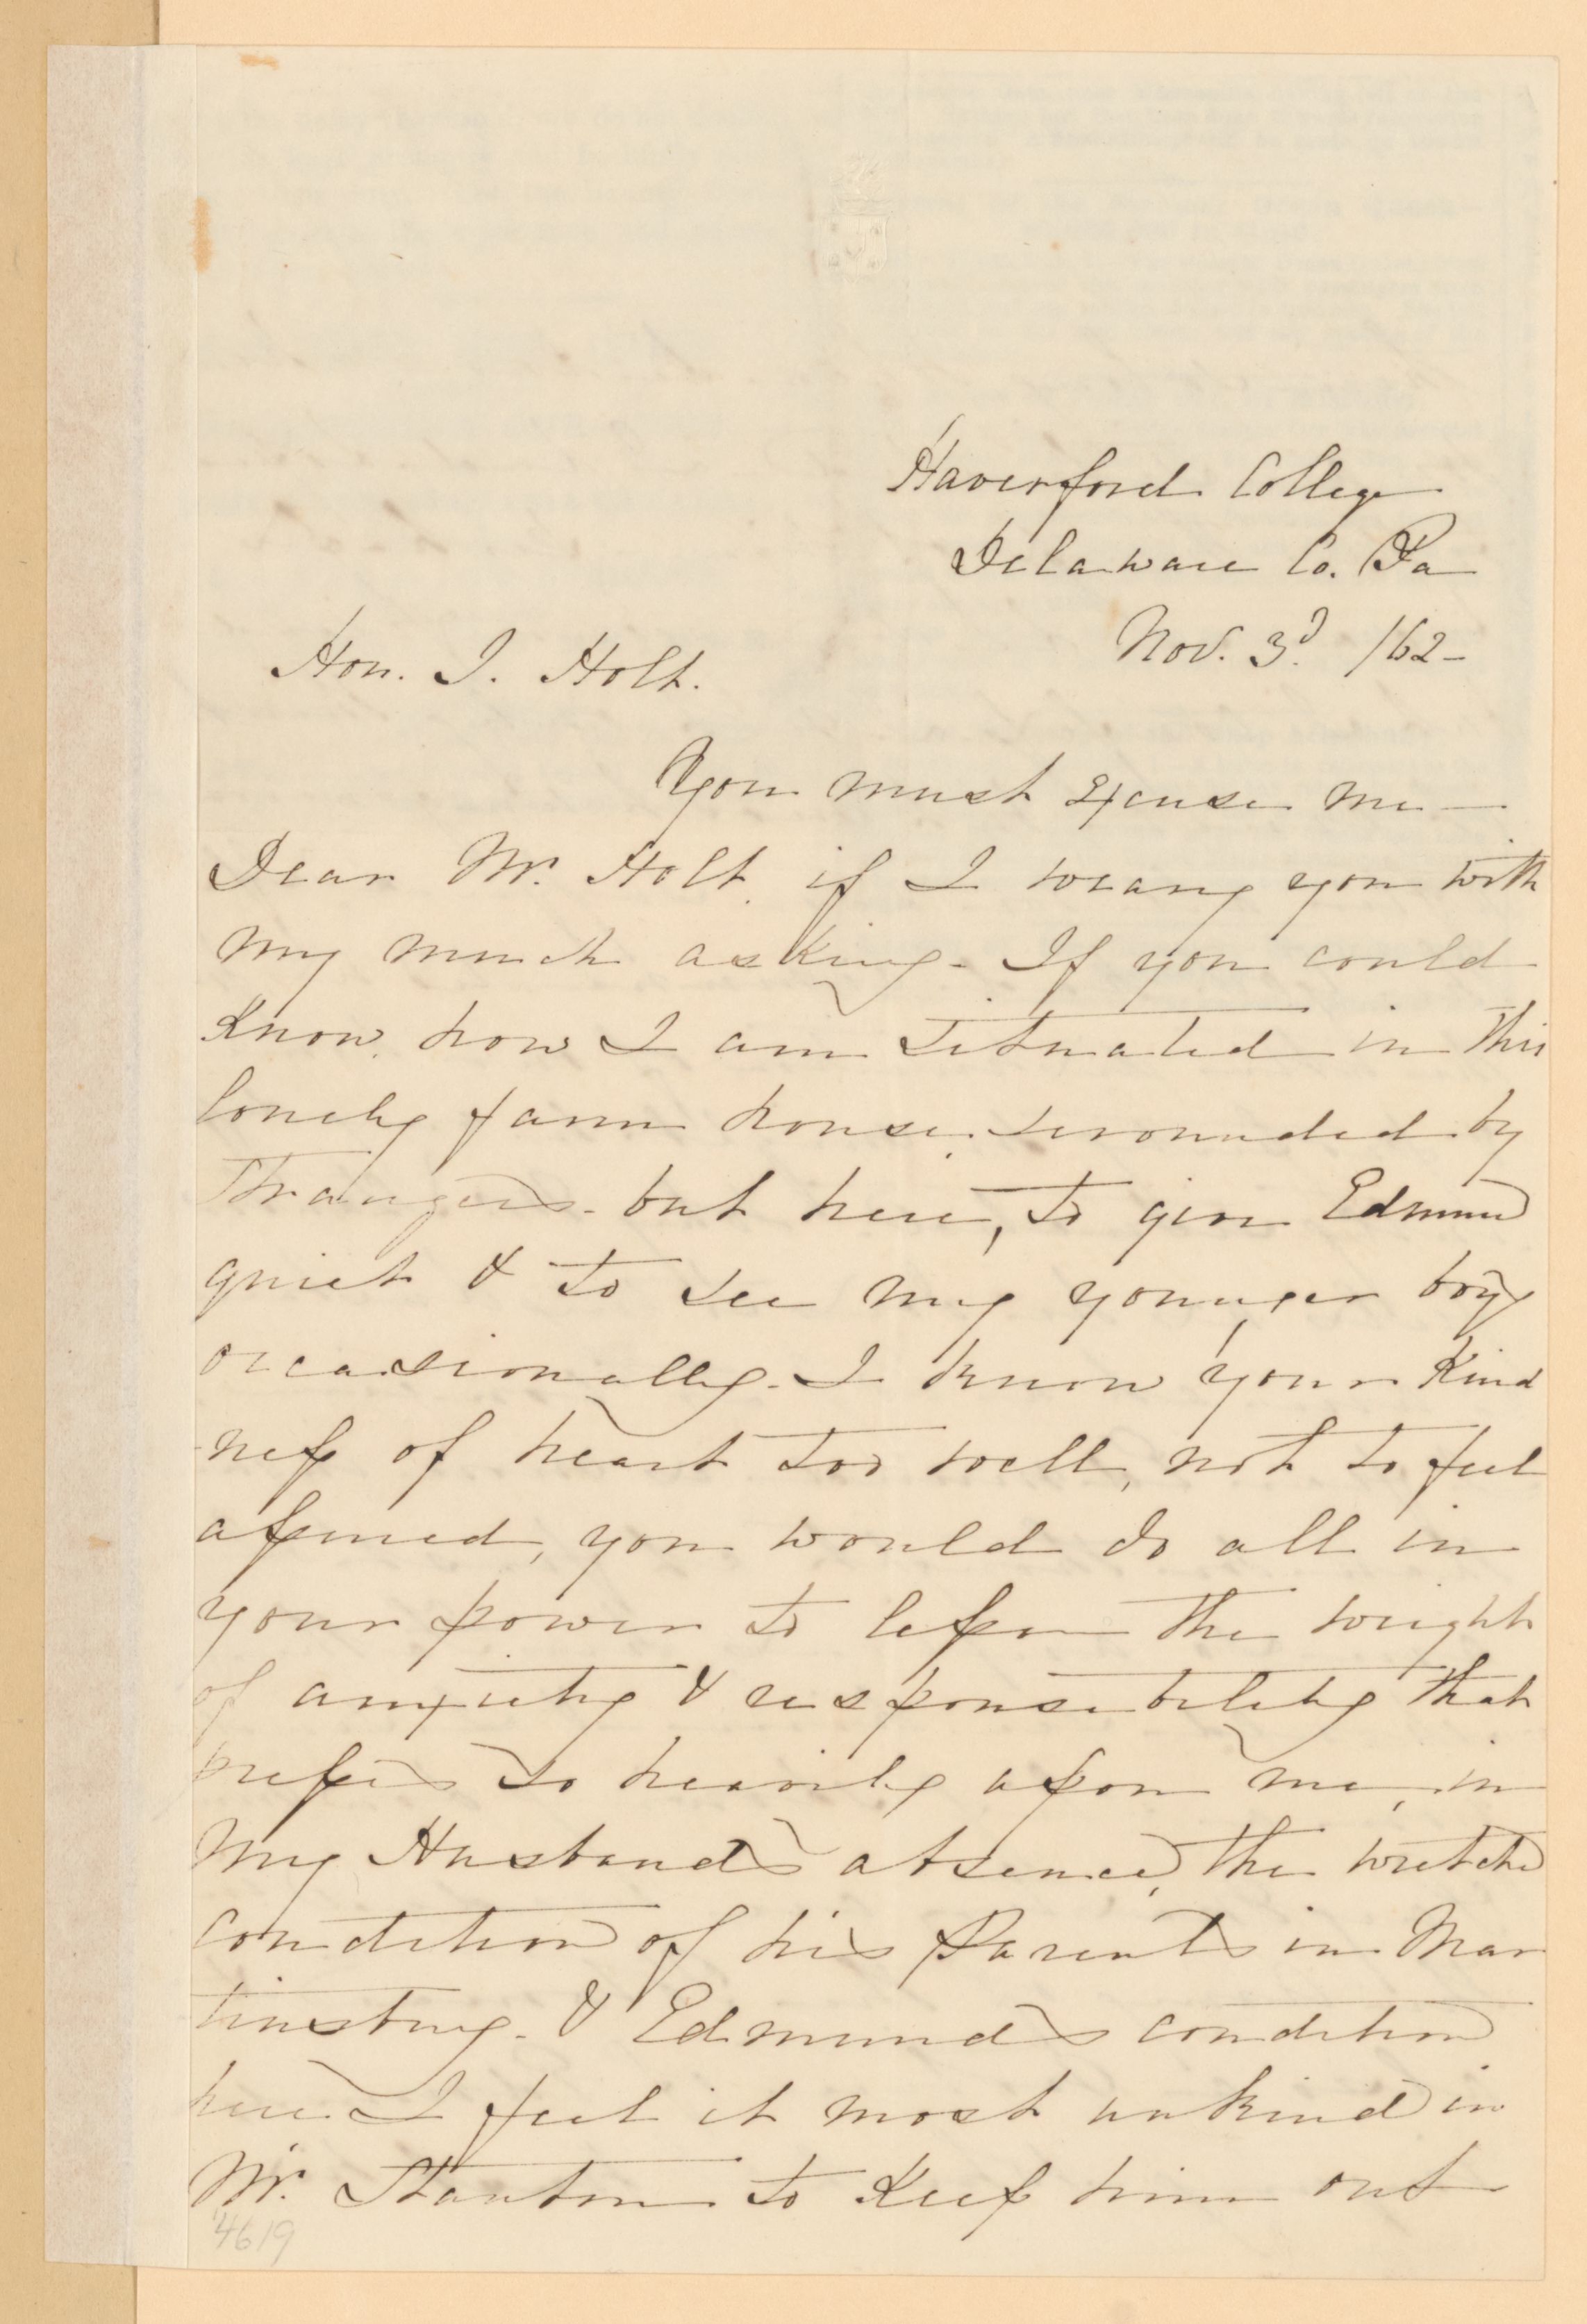 Haverford College
Delaware Co. Pa
Nov. 3d. /62-
Hon. J. Holt.
You must excuse me—
Dear Mr. Holt, if I weary you with
my much asking. If you could
know, how I am situated in this
lonely farm house, surrounded by
strangers. but here, to give Edmund
quiet & to see my younger boys
occasionally. I know your kind
-ness of heart too well, not to feel
assured, you would do all in
your power to lessen the weight
of anxiety & responsibility that
presses so heavily upon me, in
my Husband's absence, the wretched
condition of his Parents in Mar
tinsburg. & Edmund's condition
here I feel it most unkind in
Mr. Stanton to keep him out
4619